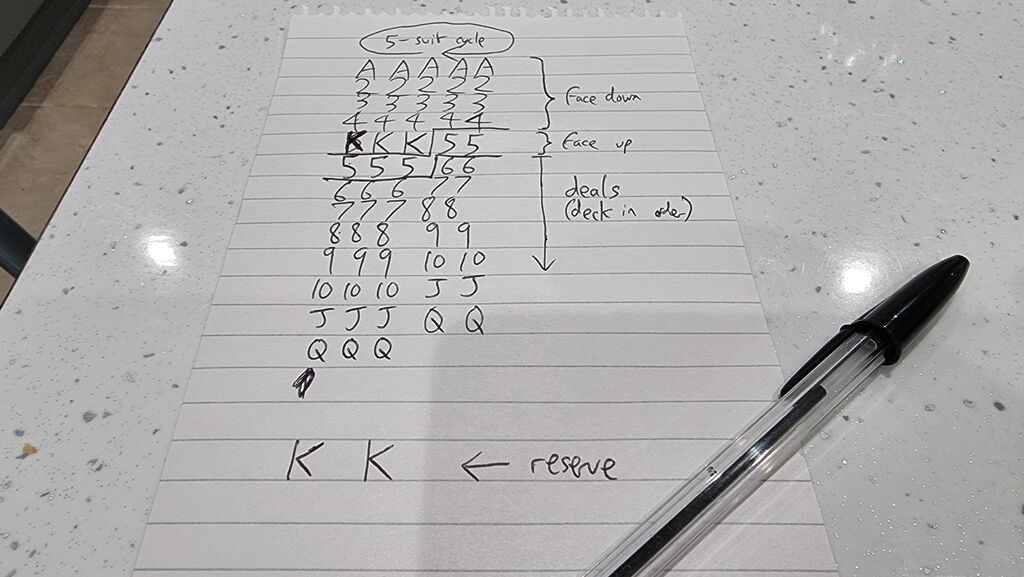 5-suit cycle
A A A A A
2 2 2 2 2
3 3 3 3 3
Face down
4 4 4 4 4
K K K 5 5 Face up
5 5 5 6 6
6 6 6 7 7
deals
7 7 7 8 8
(deck in order)
8 8 8 9 9
9 9 9 10 10
10 10 10 J J
J J J Q Q
Q Q Q
K K ← reserve